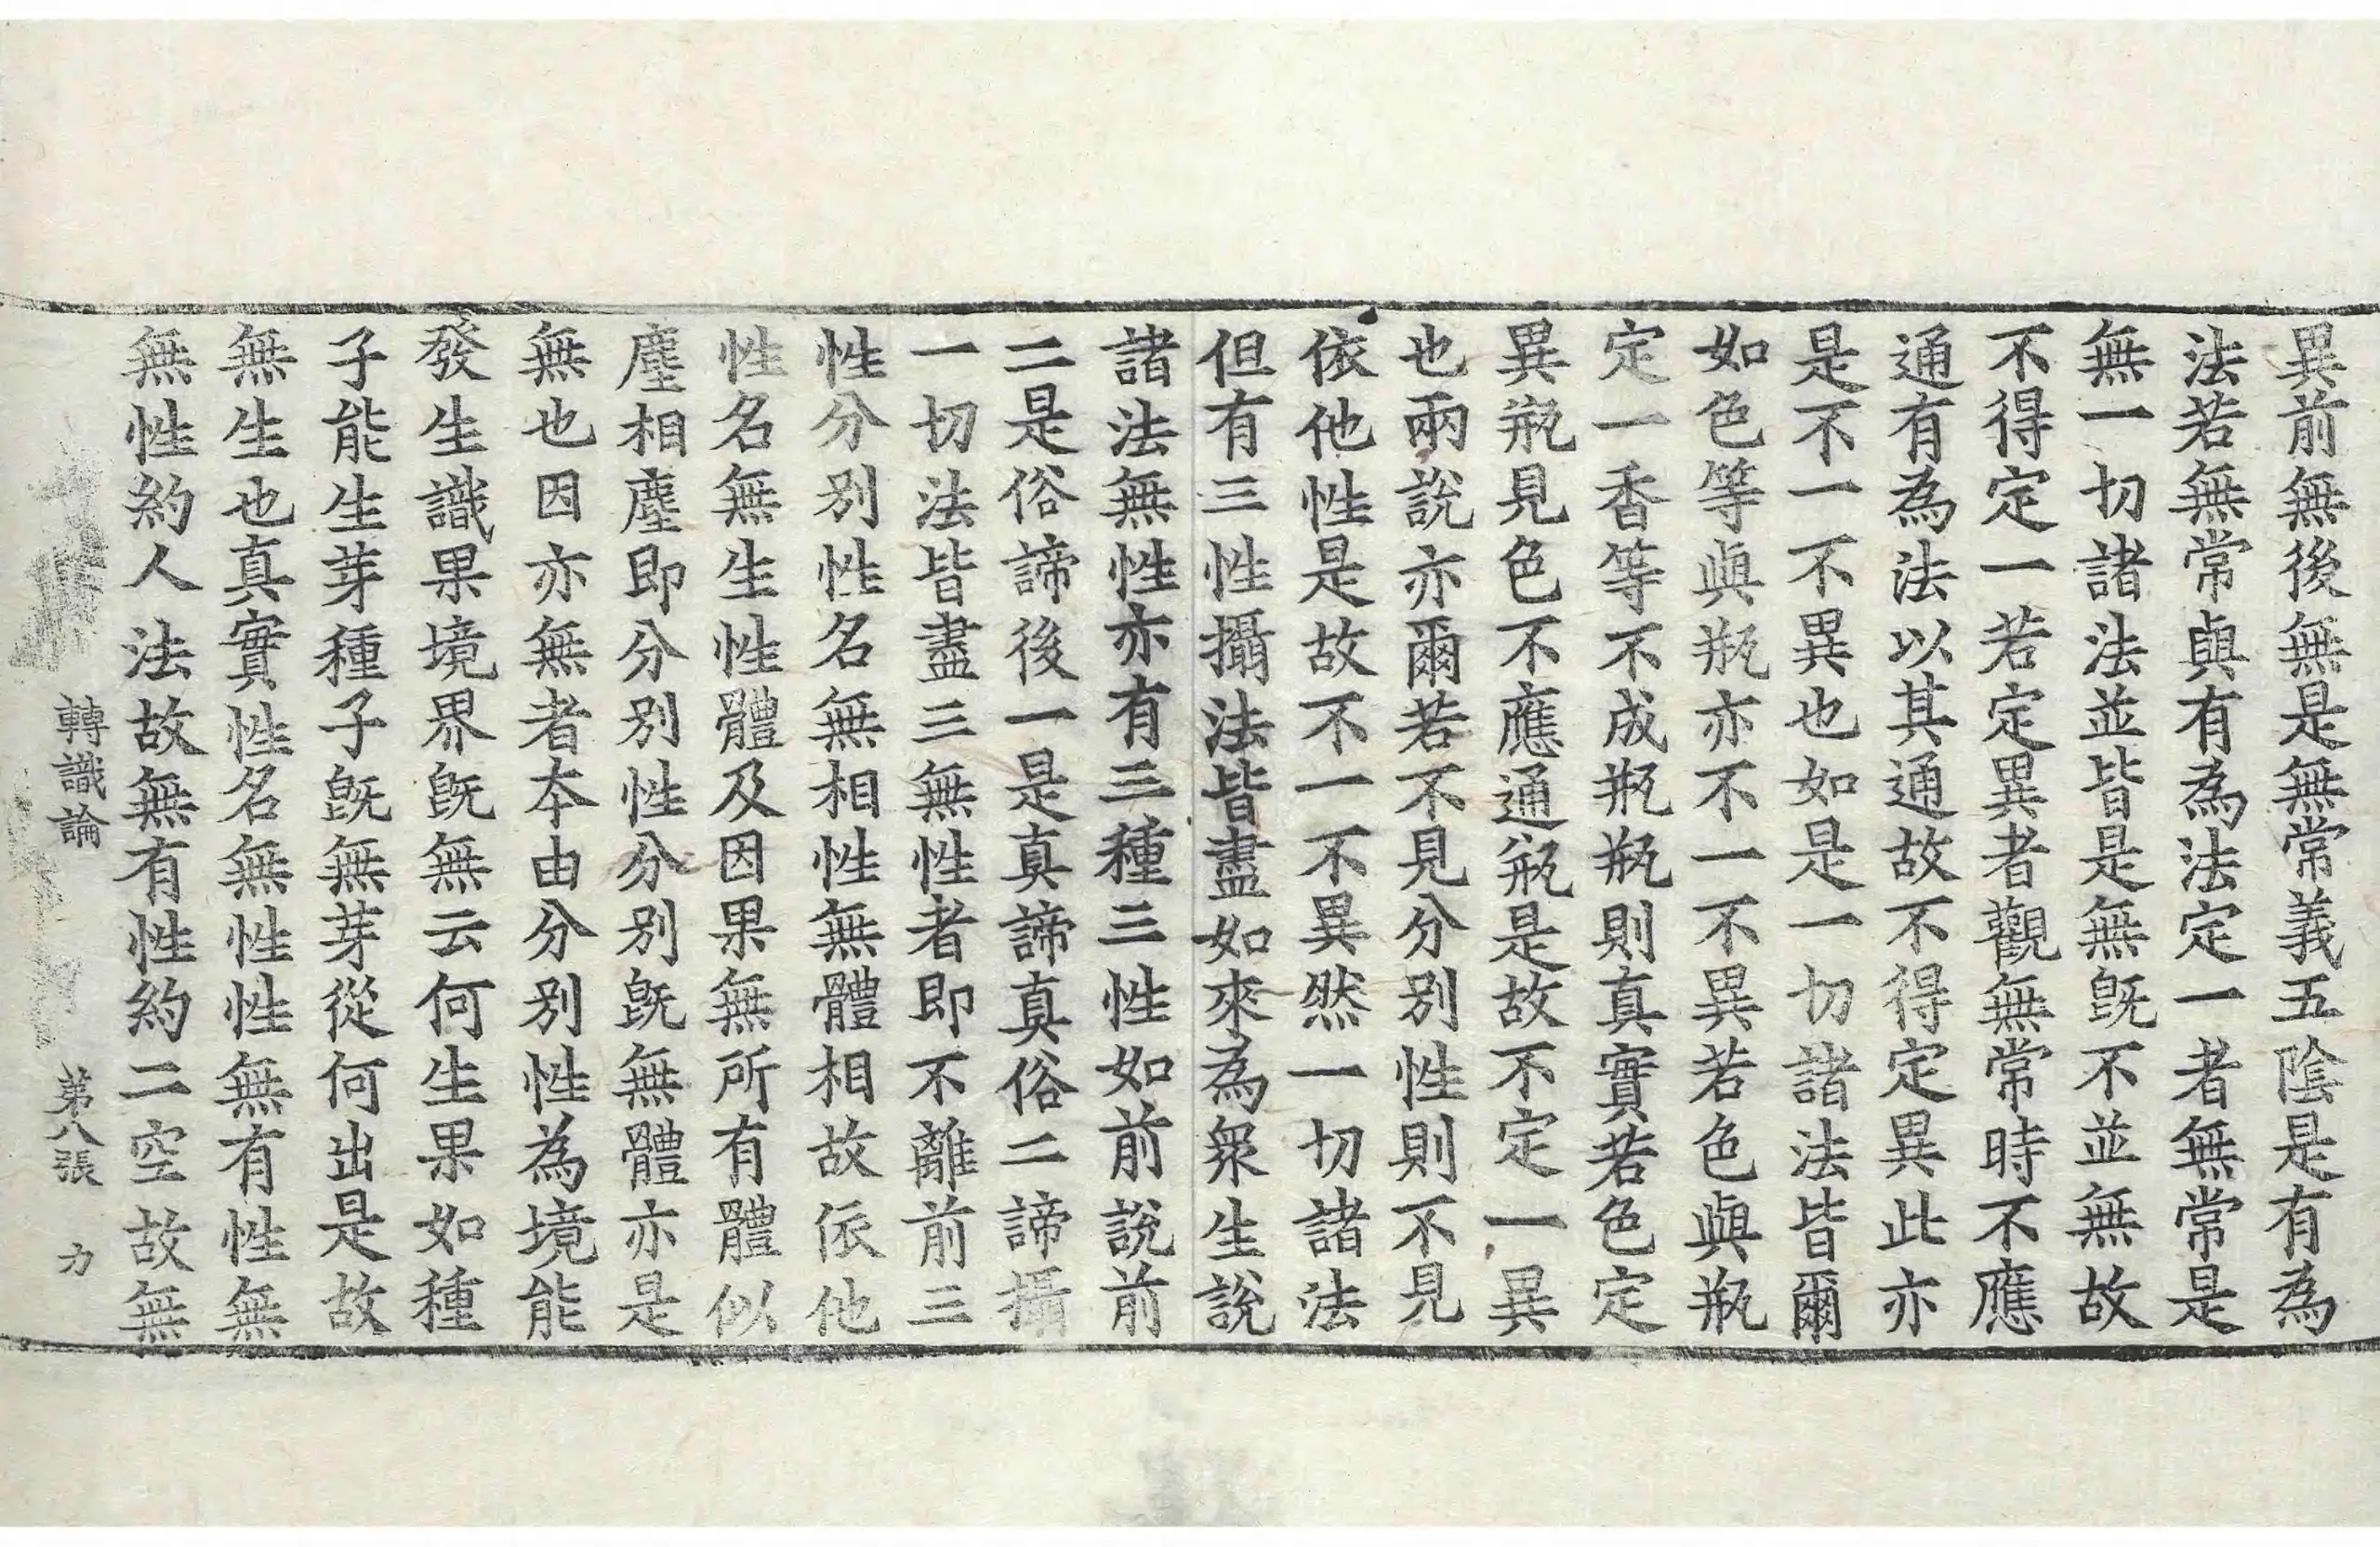 異前無後無是無常義五陰是有為
法若無常與有為法定一者無常是
無一切諸法並皆是無旣不並無故
不得定一若定異者觀無常時不應
通有為法以其通故不得定異此亦
是不一不異也如是一切諸法皆爾
如色等與瓶亦不一不異若色與瓶
定一香等不成瓶瓶則真實若色定
異瓶見色不應通瓶是故不定一異
也兩說亦爾若不見分別性則不見
依他性是故不一不異然一切諸法
但有三性攝法皆盡如來為衆生說
諸法無性亦有三種三性如前說前
二是俗諦後一是真諦真俗二諦攝
一切法皆盡三無性者即不離前三
性分別性名無相性無體相故依他
性名無生性體及因果無所有體似
塵相塵即分別性分別旣無體亦是
無也因亦無者本由分別性為境能
發生識果境界旣無云何生果如種
子能生芽種子旣無芽從何出是故
無生也真實性名無性性無有性無
無性約人法故無有性約二空故無
轉識論 第八張 力